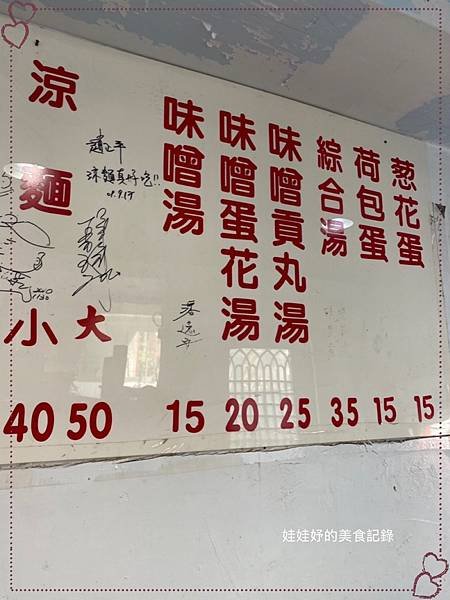 涼麵
小 大
40 50
味噌湯
15
味噌蛋花湯
20
味噌貢丸湯
25
綜合湯
35
荷包蛋
15
葱花蛋
15
涼麵真好吃!!
娃娃妤的美食記錄